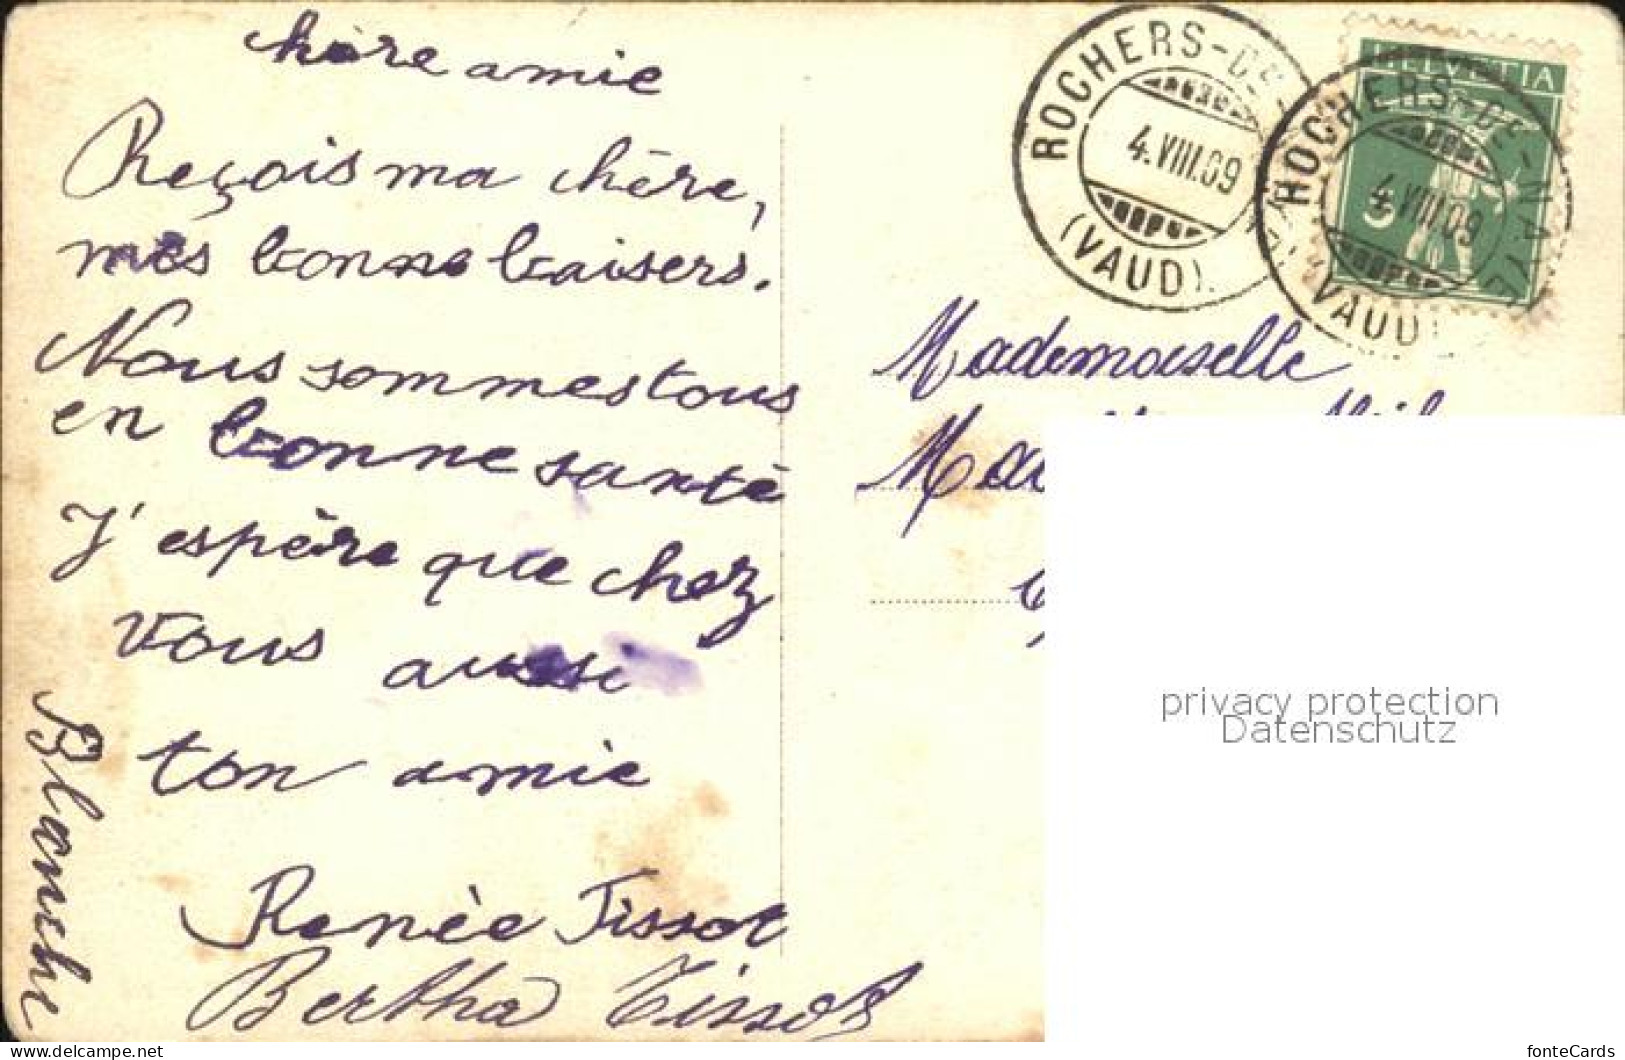 chère amie
Reçois ma chère,
mes bonne baisers.
Nous sommes tous
en bonne santé
J'espère que chez
vous aussi
ton amie
Renée Tissot
Bertha Tissot
Blanche
ROCHERS-DE-
4.VIII.09
(VAUD)
HELVETIA
5
ROCHERS-DE-NAYE
4.VIII.09
(VAUD)
Mademoiselle
privacy protection
Datenschutz
fonteCards